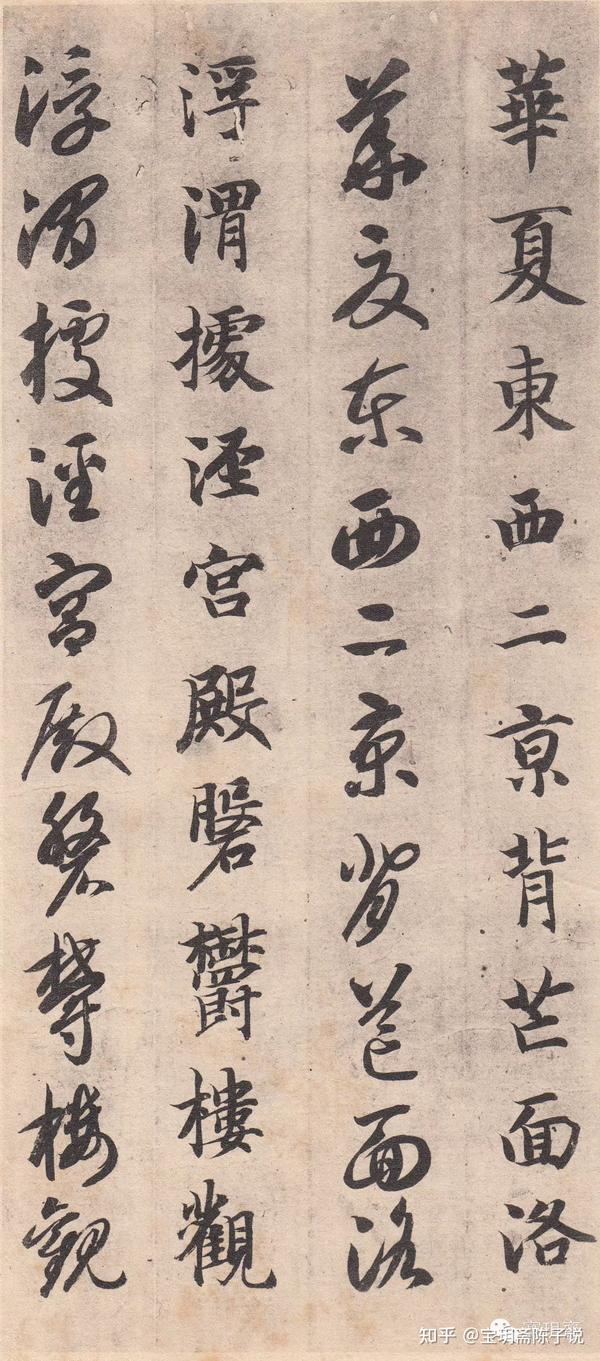 華夏東西二京背芒面洛
華夏東西二京背芒面洛
浮渭據涇宮殿磐鬱樓觀
浮渭據涇宮殿磐鬱樓觀
宝玥斋
知乎 @宝玥斋